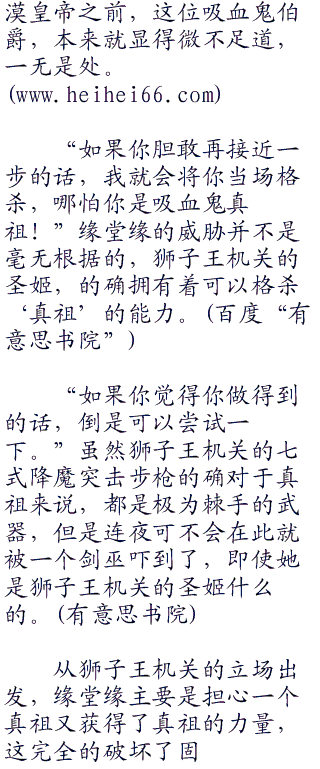 漠皇帝之前，这位吸血鬼伯
爵，本来就显得微不足道，
一无是处。
(www.heihei66.com)
“如果你胆敢再接近一
步的话，我就会将你当场格
杀，哪怕你是吸血鬼真
祖！”缘堂缘的威胁并不是
毫无根据的，狮子王机关的
圣姬，的确拥有着可以格杀
‘真祖’的能力。(百度“有
意思书院”)
“如果你觉得你做得到
的话，倒是可以尝试一
下。”虽然狮子王机关的七
式降魔突击步枪的确对于真
祖来说，都是极为棘手的武
器，但是连夜可不会在此就
被一个剑巫吓到了，即使她
是狮子王机关的圣姬什么
的。(有意思书院)
从狮子王机关的立场出
发，缘堂缘主要是担心一个
真祖又获得了真祖的力量，
这完全的破坏了固